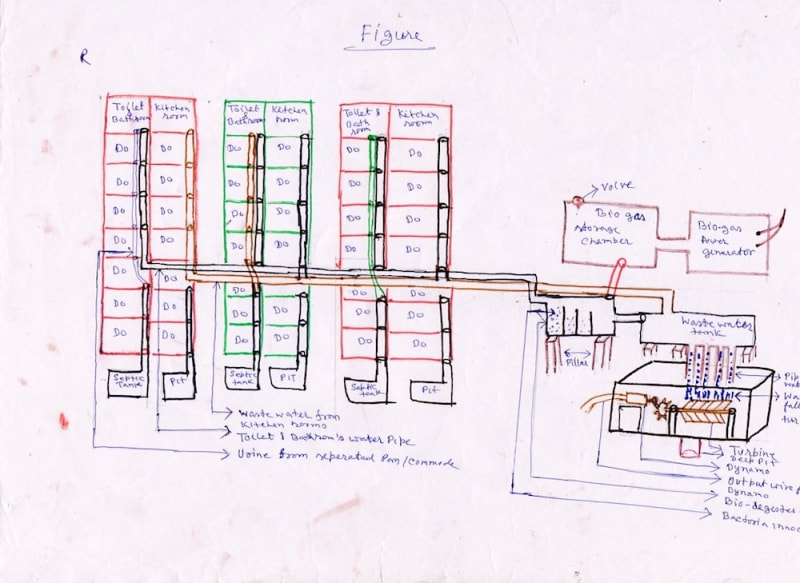 Figure
R
Toilet &
Bathroom
Kitchen
room
Toilet &
Bathroom
Kitchen
room
Toilet &
Bath
room
Kitchen
room
Do Do Do Do Do Do
Do Do Do Do Do Do
Do Do Do Do Do Do
Do Do Do Do Do Do
Do Do Do Do Do Do
Do Do Do Do Do Do
Do Do Do Do Do Do
Septic
Tank
Pit
Septic
tank
PIT
Septic
tank
Pit
Valve
Bio gas
storage
chamber
Bio-gas
Power
generator
Waste water
tank
Pillar
Pip
Wa
fall
tur
Turbine
Deep Pit
Dynamo
Output wire f
Dynamo
Bio-degester
Bactoria innoc
Waste water from
Kitchen rooms
Toilet & Bathrom's water Pipe
Urine from seperated Pan/commode